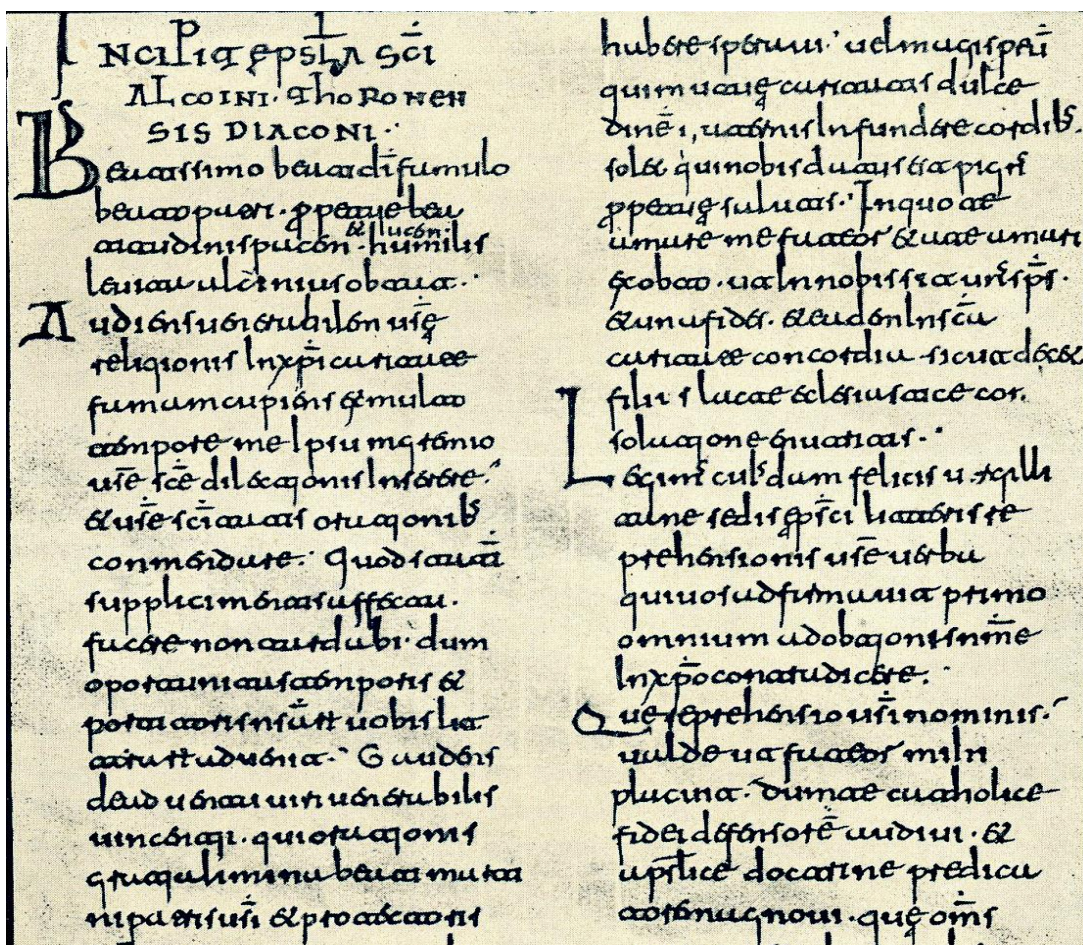 INCIPIT EPSLA SCI
ALCOINI. THORONEN
SIS DIACONI.
Beatissimo beato dī famulo
beato patri. ꝑpetue bea
titudinis pacen et lucen. humilis
lebita alcinius obtat.
Audiens uenerabilen usę̄
religionis In xp̄i caritate
famam cupiens et multo
tempore me Ipsium gremio
usē scē dilectionis Inserere.
et usē scitatis orationibs
conmendare. Quod statī
supplici mentis affectu.
facere non tardabi. dum
oportunitas temporis et
portitoris uobis lit
aduenit. Gaudens
de aduentu uiri uenerabilis
uincenti. qui orationis
gratia limina beati marti
ni patris usī et protectoris
habere speraui. uel magis
caritatis dulce
dinē Infundere cordibs
solet. qui nobis
ꝑpetuę salutis. In quo te
amare me fateor et a te amari
et obto. ut In nobis sit unˢ sp̄s.
et una fides. et eaden In scā
caritate concordia sicut decet
filiis lucae eclesiastice con
solatione enutritis.
Legimˢ cuiˢdam felicis urgilli
tane sedis epsci litteris re
prehensionis usē uerba
qui uos adfirmauit primo
omnium adobtionis nmē
In xp̄o conatu dicere.
Que reprehensio usī nominis.
ualde ut fateor mihi
placuit. dum te catholice
fidei defensorē audiui. et
apslice doctrine predica
toren agnoui. quę oms